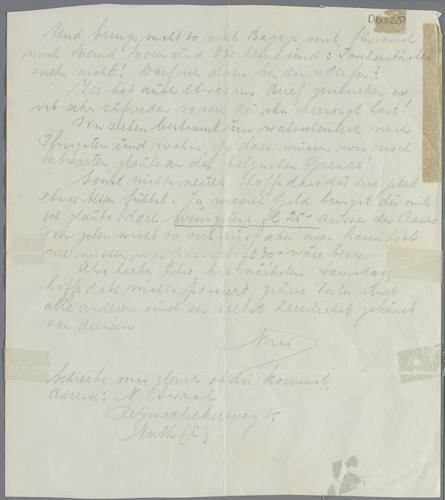 Und bringe nicht so viel Bagage mit, für mich
noch Hemd Hosen und Oberhemd und 3 Taschentücher
mehr nicht!
hat auch etwas im Brief geschrieben er
ist sehr zufrieden so wie du ihn versorgt hast!
Wir ziehen bestimmt um wahrscheinlich nach
Pfingsten und wohin, ja dass müssen wir noch
abwarten glaube an der belgischen Grenze!
Sonst nichts neues hoffe dass du dich jetzt
etwas besser fühlst. Ja, wieviel Geld bringst du mit
ich glaube doch wenigstens fl 25.- aus der Casse
nicht so viel aus, aber man kann doch
nie wissen, was passiert fl 30.- wäre besser
Also liebe bis nächsten Samstag,
hoffe dass nichts passiert, grüsse Vater und
alle anderen und sei selbst herzlichst geküsst
von deinem
Schreibe mir gleich ob du kommst.
Adresse: N.
Nuth (L)